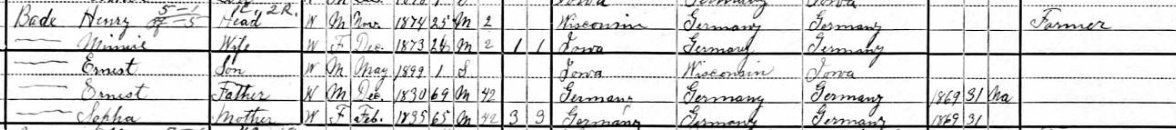 Bade Henry 5-1 Head W M Nov. 1874 25 M 2 Wisconsin Germany Germany Farmer
Minnie Wife W F Dec. 1873 26 M 2 1 1 Iowa Germany Germany
Ernest Son W M May 1899 1 S Iowa Wisconsin Iowa
Ernest Father W M Dec. 1830 69 M 42 Germany Germany Germany 1869 31 Na
Sopha Mother W F Feb. 1835 65 M 42 3 3 Germany Germany Germany 1869 31